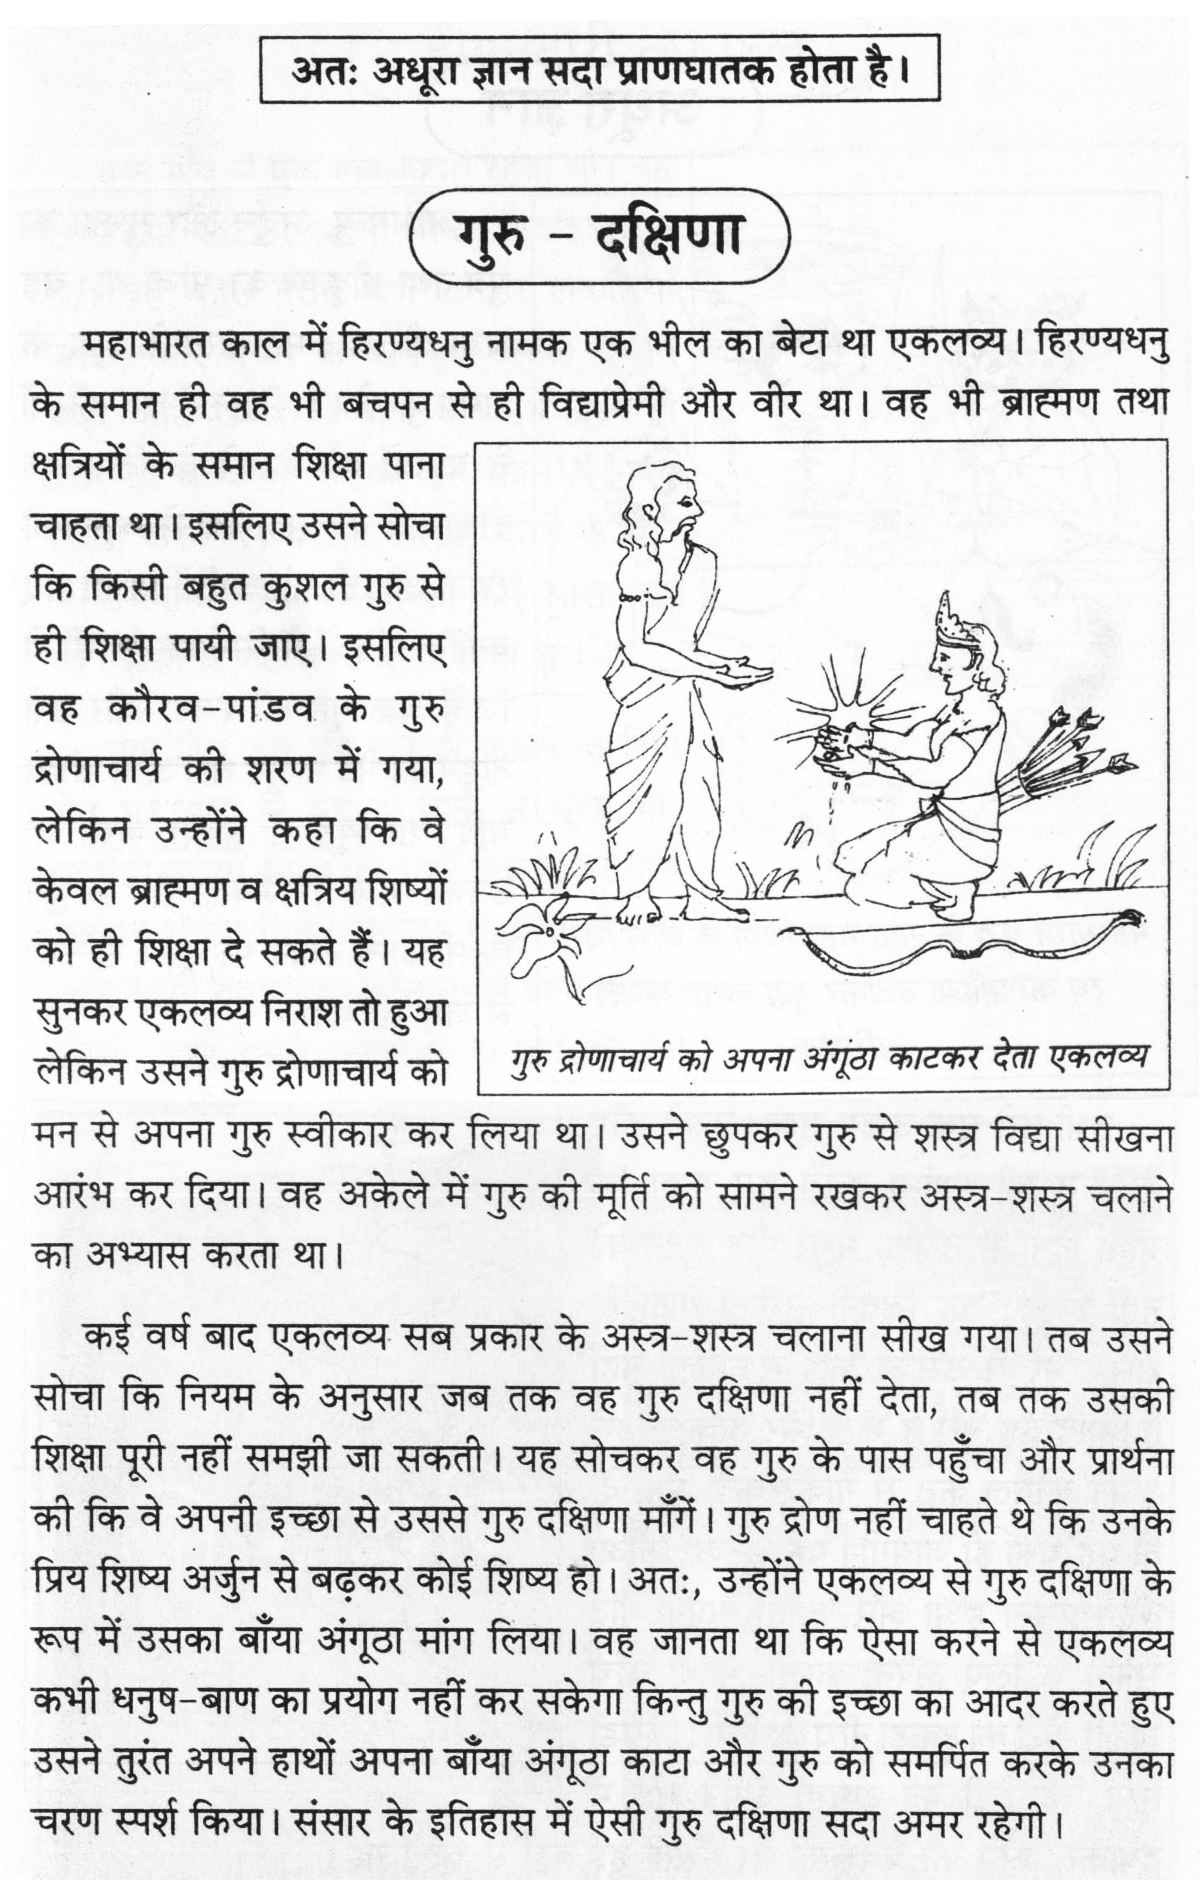 अतः अधूरा ज्ञान सदा प्राणघातक होता है।
गुरु - दक्षिणा
महाभारत काल में हिरण्यधनु नामक एक भील का बेटा था एकलव्य। हिरण्यधनु
के समान ही वह भी बचपन से ही विद्याप्रेमी और वीर था। वह भी ब्राह्मण तथा
क्षत्रियों के समान शिक्षा पाना
चाहता था। इसलिए उसने सोचा
कि किसी बहुत कुशल गुरु से
ही शिक्षा पायी जाए। इसलिए
वह कौरव-पांडव के गुरु
द्रोणाचार्य की शरण में गया,
लेकिन उन्होंने कहा कि वे
केवल ब्राह्मण व क्षत्रिय शिष्यों
को ही शिक्षा दे सकते हैं। यह
सुनकर एकलव्य निराश तो हुआ
लेकिन उसने गुरु द्रोणाचार्य को
गुरु द्रोणाचार्य को अपना अंगूंठा काटकर देता एकलव्य
मन से अपना गुरु स्वीकार कर लिया था। उसने छुपकर गुरु से शस्त्र विद्या सीखना
आरंभ कर दिया। वह अकेले में गुरु की मूर्ति को सामने रखकर अस्त्र-शस्त्र चलाने
का अभ्यास करता था।
कई वर्ष बाद एकलव्य सब प्रकार के अस्त्र-शस्त्र चलाना सीख गया। तब उसने
सोचा कि नियम के अनुसार जब तक वह गुरु दक्षिणा नहीं देता, तब तक उसकी
शिक्षा पूरी नहीं समझी जा सकती। यह सोचकर वह गुरु के पास पहुँचा और प्रार्थना
की कि वे अपनी इच्छा से उससे गुरु दक्षिणा माँगें। गुरु द्रोण नहीं चाहते थे कि उनके
प्रिय शिष्य अर्जुन से बढ़कर कोई शिष्य हो। अतः, उन्होंने एकलव्य से गुरु दक्षिणा के
रूप में उसका बाँया अंगूठा मांग लिया। वह जानता था कि ऐसा करने से एकलव्य
कभी धनुष-बाण का प्रयोग नहीं कर सकेगा किन्तु गुरु की इच्छा का आदर करते हुए
उसने तुरंत अपने हाथों अपना बाँया अंगूठा काटा और गुरु को समर्पित करके उनका
चरण स्पर्श किया। संसार के इतिहास में ऐसी गुरु दक्षिणा सदा अमर रहेगी।